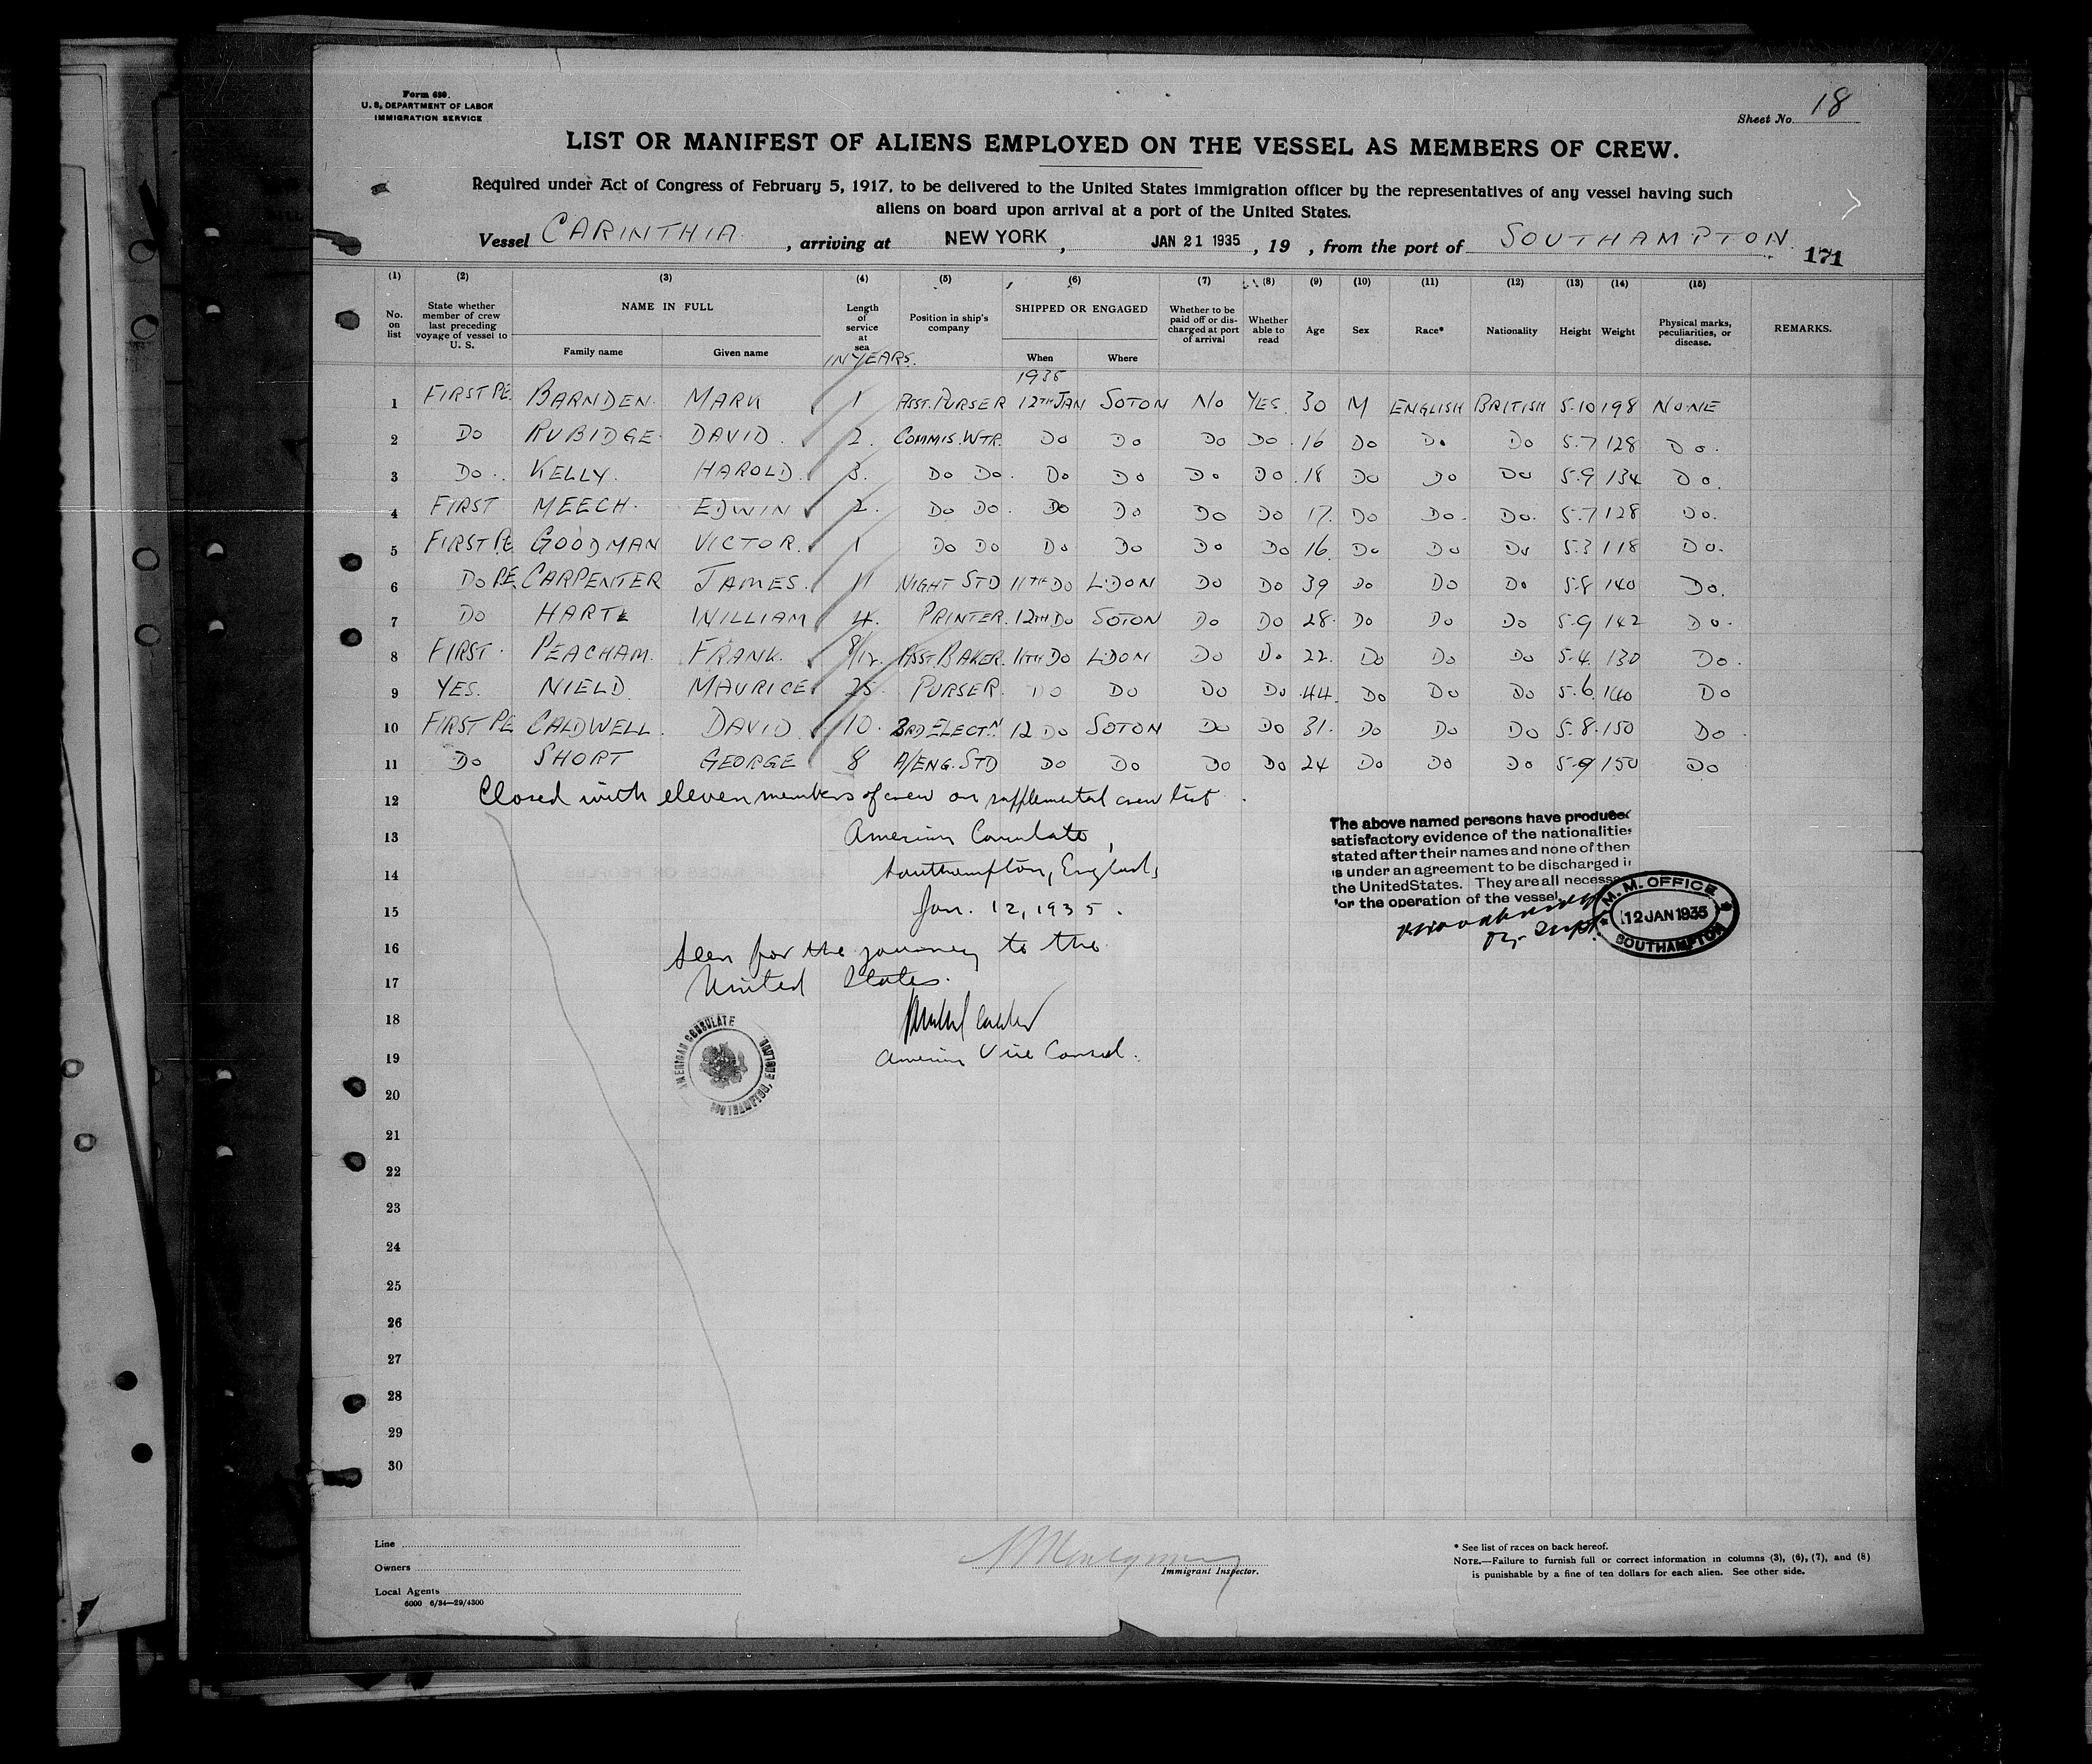 Form 680.
U. S. DEPARTMENT OF LABOR
IMMIGRATION SERVICE
Sheet No. 18
LIST OR MANIFEST OF ALIENS EMPLOYED ON THE VESSEL AS MEMBERS OF CREW.
Required under Act of Congress of February 5, 1917, to be delivered to the United States immigration officer by the representatives of any vessel having such
aliens on board upon arrival at a port of the United States.
Vessel CARINTHIA, arriving at NEW YORK, JAN 21 1935, 19 , from the port of SOUTHAMPTON.
171
(1) (2) (3) (4) (5) (6) (7) (8) (9) (10) (11) (12) (13) (14) (15)
No. on list State whether member of crew last preceding voyage of vessel to U. S. NAME IN FULL Family name Given name Length of service at sea IN YEARS. Position in ship's company SHIPPED OR ENGAGED When Where Whether to be paid off or discharged at port of arrival Whether able to read Age Sex Race* Nationality Height Weight Physical marks, peculiarities, or disease. REMARKS.
1935
1 FIRST PE BARNDEN. MARK 1 ASST. PURSER 12TH JAN SOTON NO YES 30 M ENGLISH BRITISH 5-10 198 NONE
2 DO RUBIDGE DAVID. 2. COMMIS. WTR. DO DO DO DO 16 DO DO DO 5.7 128 DO.
3 DO. KELLY. HAROLD. 3. DO DO. DO DO DO DO 18 DO DO DO 5.9 134 DO.
4 FIRST MEECH. EDWIN 2. DO DO. DO DO DO DO 17. DO DO. DO. 5.7 128 DO.
5 FIRST PE GOODMAN VICTOR. 1 DO DO DO DO DO DO 16. DO DO DO 5.3 118 DO.
6 DO PE. CARPENTER JAMES. 11 NIGHT STD 11TH DO L.DON DO DO 39 DO DO DO 5.8 140 DO.
7 DO HART WILLIAM 4. PRINTER. 12TH DO SOTON DO DO 28. DO DO DO 5.9 142 DO.
8 FIRST. PEACHAM. FRANK. 8/12. ASST. BAKER. 11TH DO L.DON DO DO 22. DO DO DO 5.4. 130 DO.
9 YES. NIELD. MAURICE 25. PURSER. DO DO DO DO 44. DO DO DO 5.6. 140 DO
10 FIRST PE CALDWELL. DAVID. 10. 3RD ELECTN. 12 DO SOTON DO DO 31. DO DO DO 5.8. 150 DO
11 DO SHORT GEORGE 8 A/ENG. STD DO DO DO DO 24 DO DO DO 5-9 150 DO
12 Closed with eleven members of crew on supplemental crew list.
13 American Consulate,
14 Southampton, England,
15 Jan. 12, 1935.
16 Seen for the journey to the
17 United States.
18
19 American Vice Consul.
AMERICAN CONSULATE
SOUTHAMPTON, ENGLAND.
The above named persons have produced
satisfactory evidence of the nationalities
stated after their names and none of them
is under an agreement to be discharged in
the United States. They are all necessa
for the operation of the vessel.
M. M. OFFICE
12 JAN 1935
SOUTHAMPTON
20
21
22
23
24
25
26
27
28
29
30
Line
Owners
Local Agents
6000 6/34—29/4300
Montgomery
Immigrant Inspector.
* See list of races on back hereof.
NOTE.—Failure to furnish full or correct information in columns (3), (6), (7), and (8)
is punishable by a fine of ten dollars for each alien. See other side.